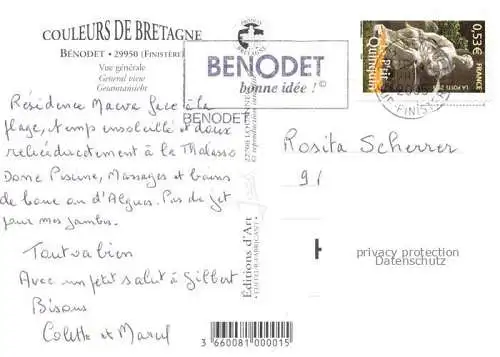 COULEURS DE BRETAGNE
BÉNODET - 29950 (FINISTÈRE)
Vue générale
General view
Gesamtansicht
PRODUIT EN BRETAGNE
BENODET
bonne idée ! ©
BENODET
0,53€
Le P'tit Quinquin
LA POSTE
FRANCE
Résidence Maeva face à la
plage, temps ensoleillé et doux
relié directement à la Thalasso
Donc Piscine, Massages et bains
de boue ou d'Algues. Pas de jet
pour mes jambes.
Tout va bien
Avec un petit salut à Gilbert
Bisous
Colette et Marcel
Editions d'Art
EDITEUR-FABRICANT
Rosita Scherrer
91
privacy protection
Datenschutz
3 660081 000015